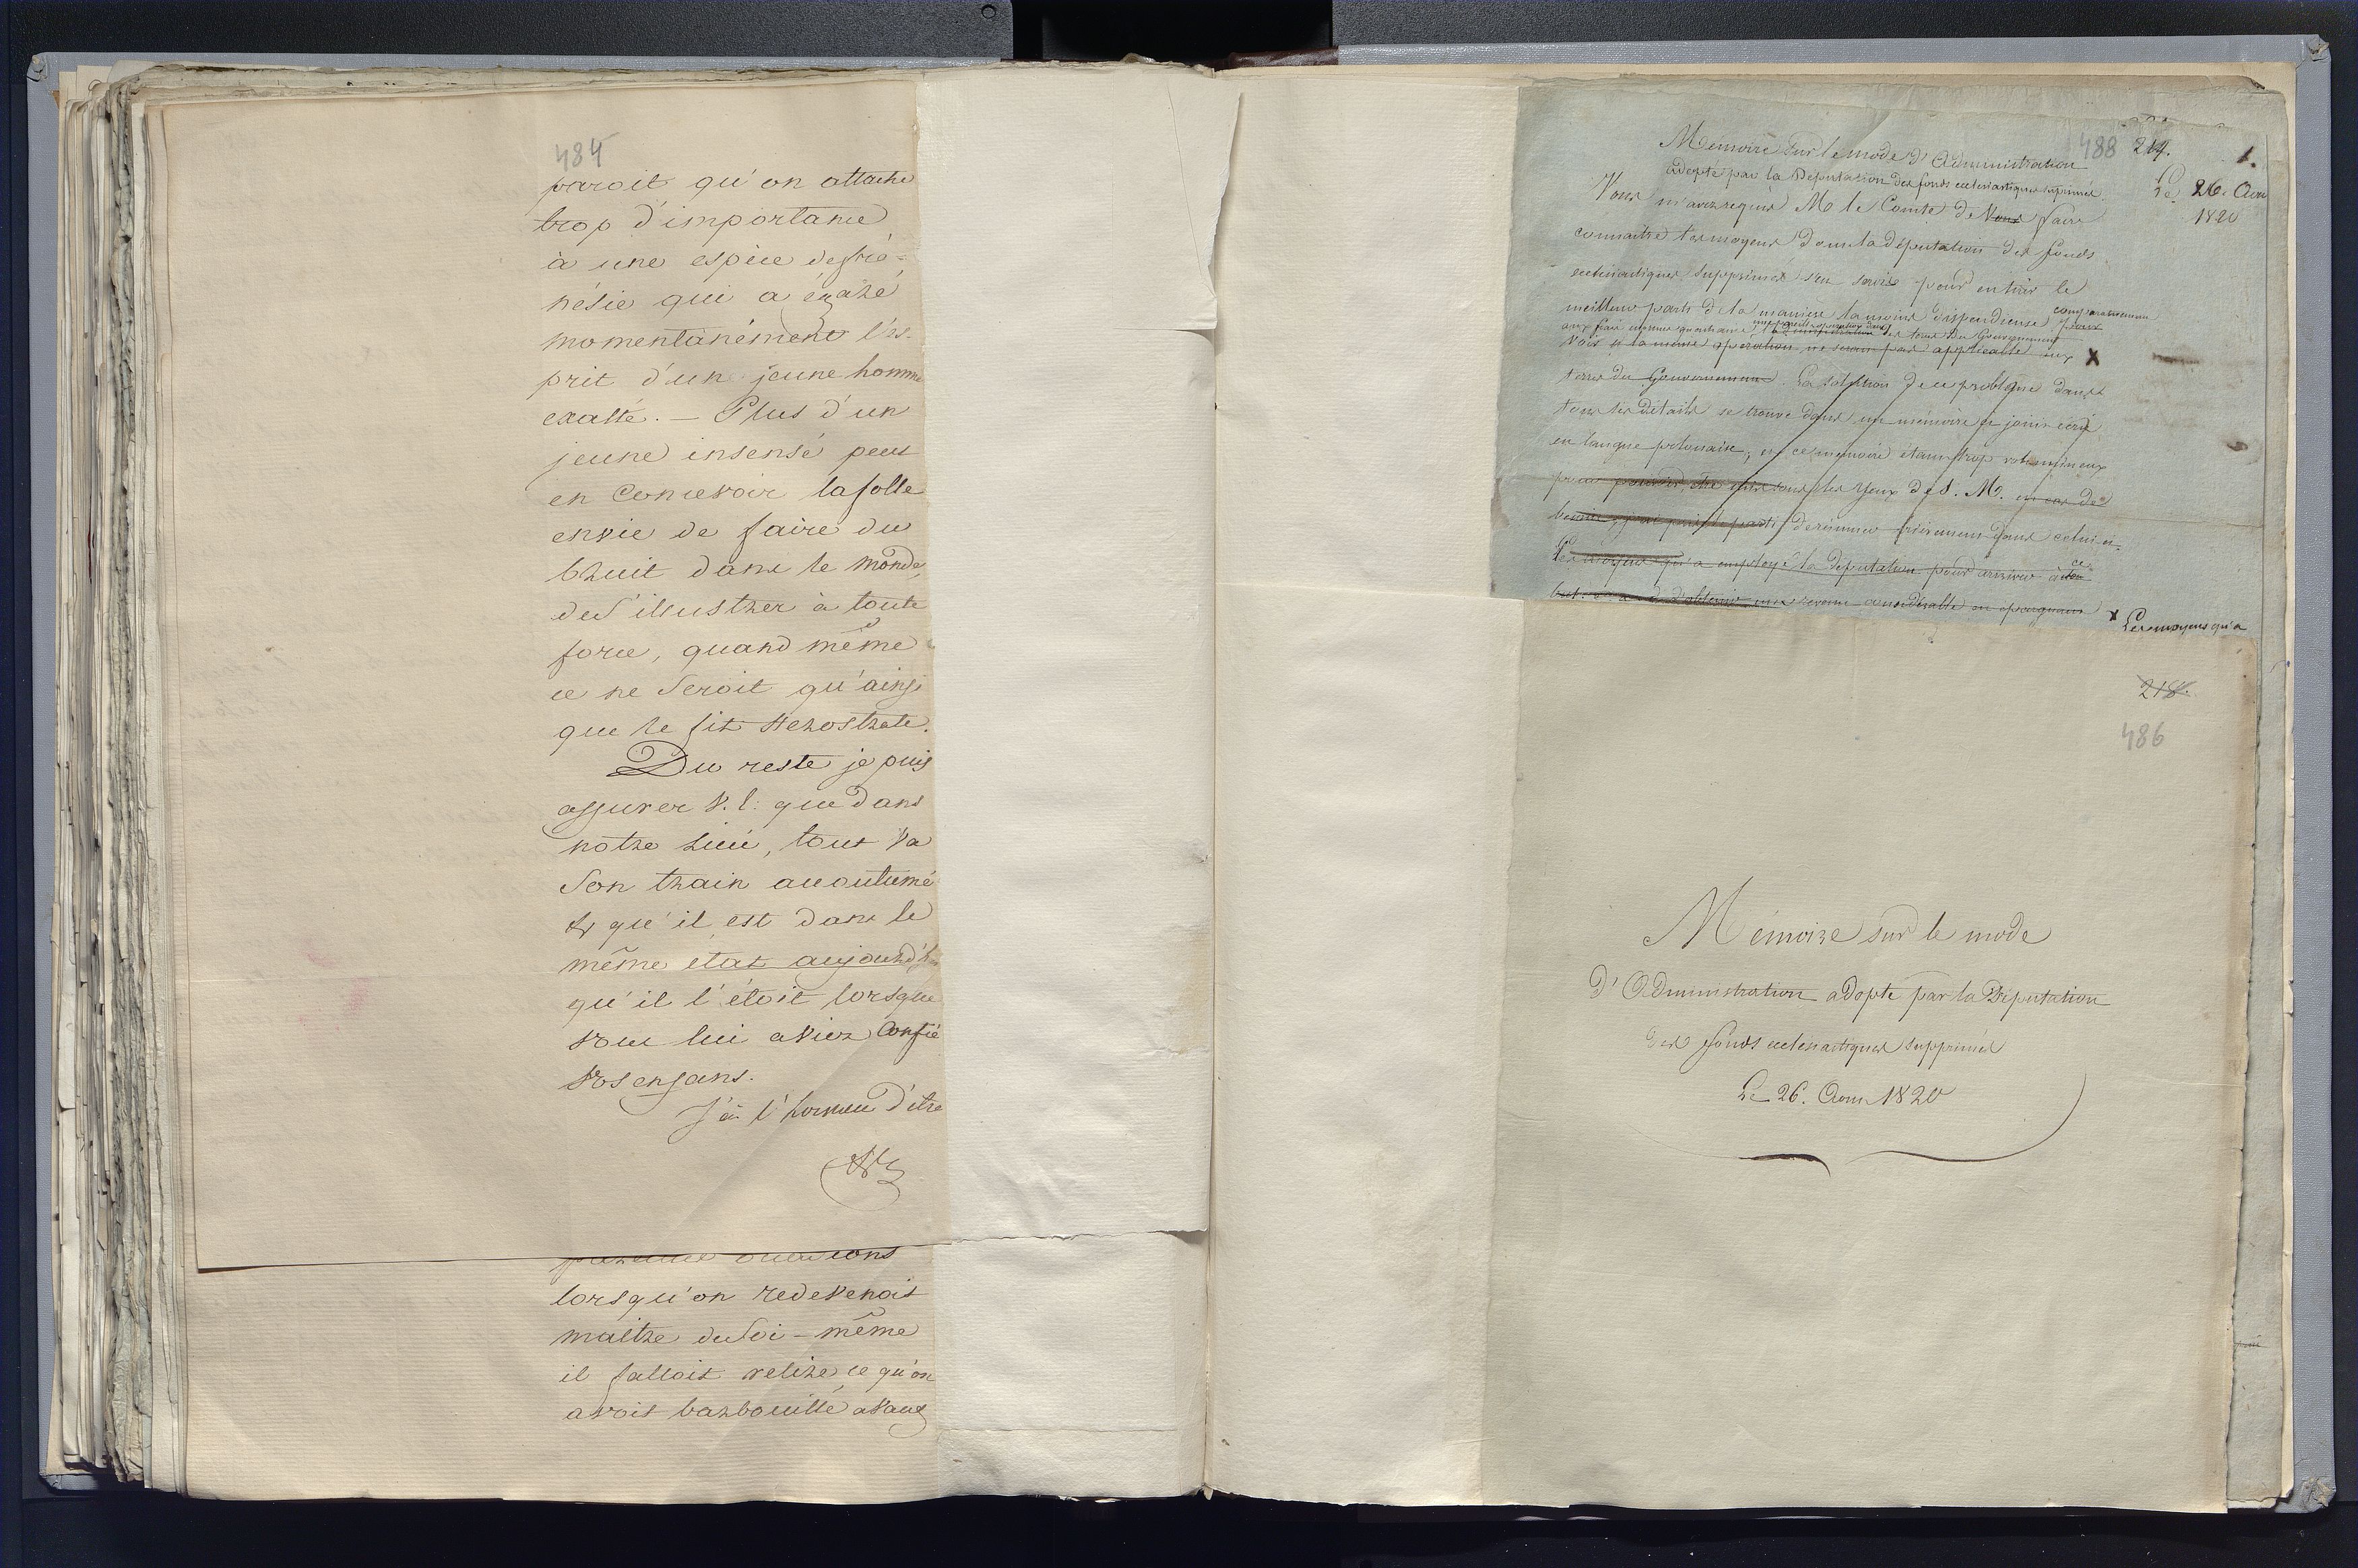 484
paroit qu'on attache
trop d'importance
à une espèce de fré=
nésie qui a égaré
momentanément l'es-
prit d'un jeune homme
exalté. — Plus d'un
jeune insensé peut
en concevoir la folle
envie de faire du
bruit dans le monde,
de s'illustrer à toute
force, quand même
ce ne seroit qu'ainsi
que le fit Herostrate.
Du reste je puis
assurer V. E: que dans
notre Liceé, tout va
son train accoutumé
& qu'il est dans le
même état aujourd'hui
qu'il l'étoit lorsque
vous lui aviez confié
vos enfans.
J'ai l'honneur d'être
lorsqu'on redevenoit
maitre de soi-même
il falloit relire ce qu'on
avoit barbouillé avant
488 214. 1.
Mémoire sur le mode d'Administration
adopté par la Députation des fonds ecclésiastiques supprimés
Le 26. Aout
1820
Vous m'avez requis M le Comte de Vous faire
connaitre les moyens dont la députation des fonds
ecclésiastiques supprimés s'en servie pour en tirer le
meilleur parti de la manière la moins dispendieuse comparativement pour
voir si la même opération ne serait pas applicable aux X
terres du Gouvernement. La solution de ce problème dans
tous les détails se trouve dans un mémoire ci joint écrit
en langue polonaise, et ce mémoire étant trop volumineux
pour pouvoir être mis sous les yeux de S. M. en cas de
besoin, j'ai pris le parti de résumer brièvement dans celui-ci.
Les moyens qu'a employé la députation pour arriver à ce
but d'obtenir un revenu considérable en épargnant
X Les moyens qu'a
218.
486
Mémoire sur le mode
d'Administration adopté par la Députation
des fonds ecclésiastiques supprimés
Le 26. Aout 1820